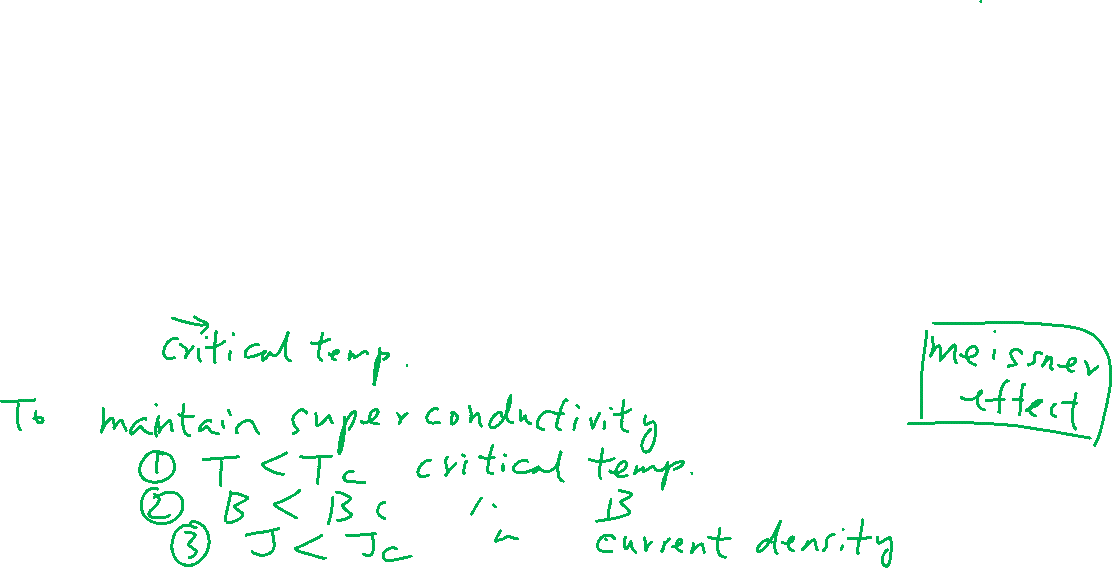 critical temp.
meissner
effect
To maintain superconductivity
① T < Tc critical temp.
② B < Bc " B
③ J < Jc " current density